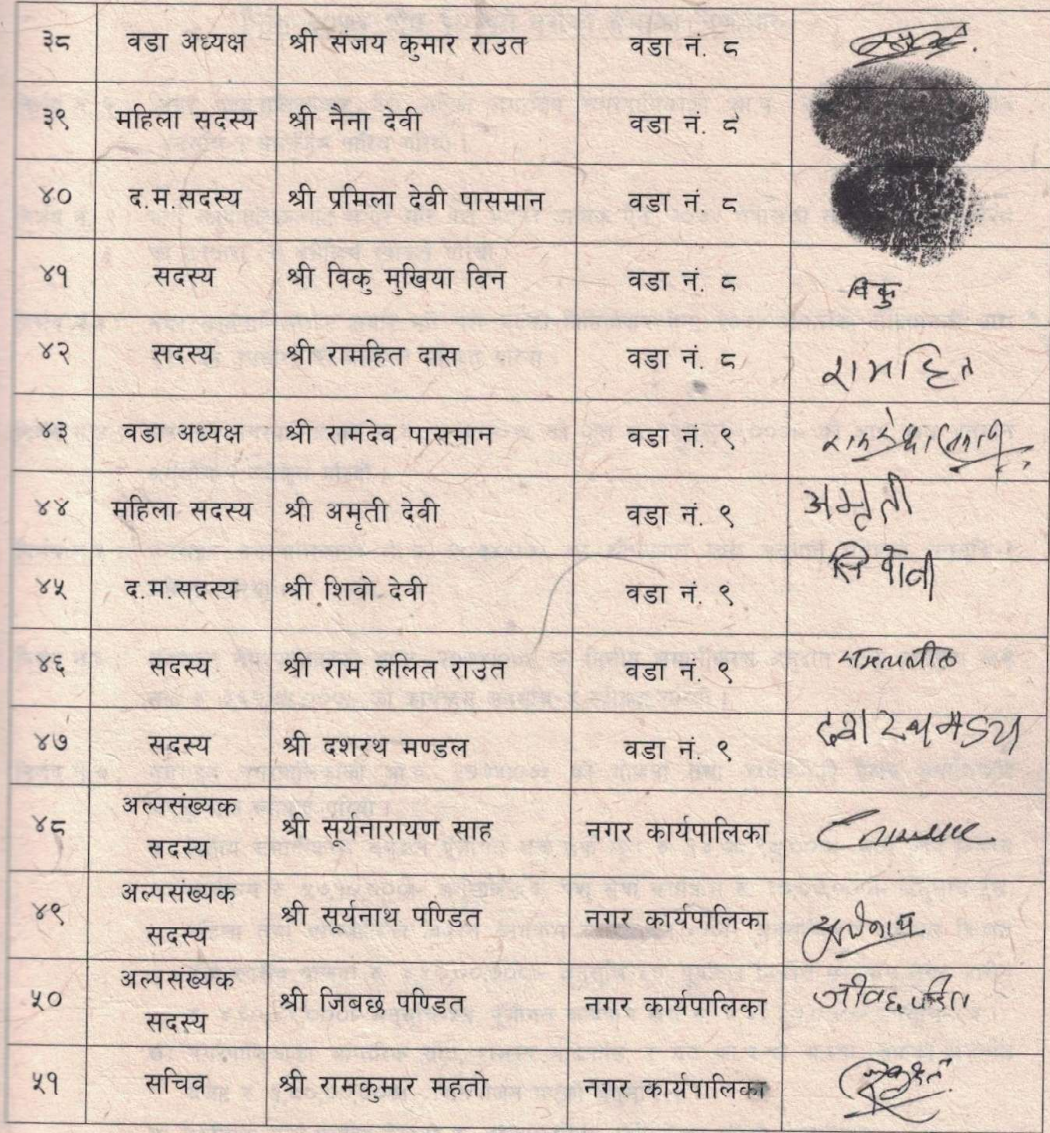 ३८ वडा अध्यक्ष श्री संजय कुमार राउत वडा नं. ८
३९ महिला सदस्य श्री नैना देवी वडा नं. ८
४० द.म.सदस्य श्री प्रमिला देवी पासमान वडा नं. ८
४१ सदस्य श्री विकु मुखिया विन वडा नं. ८ विकु
४२ सदस्य श्री रामहित दास वडा नं. ८ रामहित
४३ वडा अध्यक्ष श्री रामदेव पासमान वडा नं. ९
४४ महिला सदस्य श्री अमृती देवी वडा नं. ९ अमृती
४५ द.म.सदस्य श्री शिवो देवी वडा नं. ९
४६ सदस्य श्री राम ललित राउत वडा नं. ९
४७ सदस्य श्री दशरथ मण्डल वडा नं. ९
४८ अल्पसंख्यक
सदस्य श्री सर्यनारायण साह नगर कार्यपालिका
४९ अल्पसंख्यक
सदस्य श्री सर्यनाथ पण्डित नगर कार्यपालिका
५० अल्पसंख्यक
सदस्य श्री जिबछ पण्डित नगर कार्यपालिका
५१ सचिव श्री रामकुमार महतो नगर कार्यपालिका